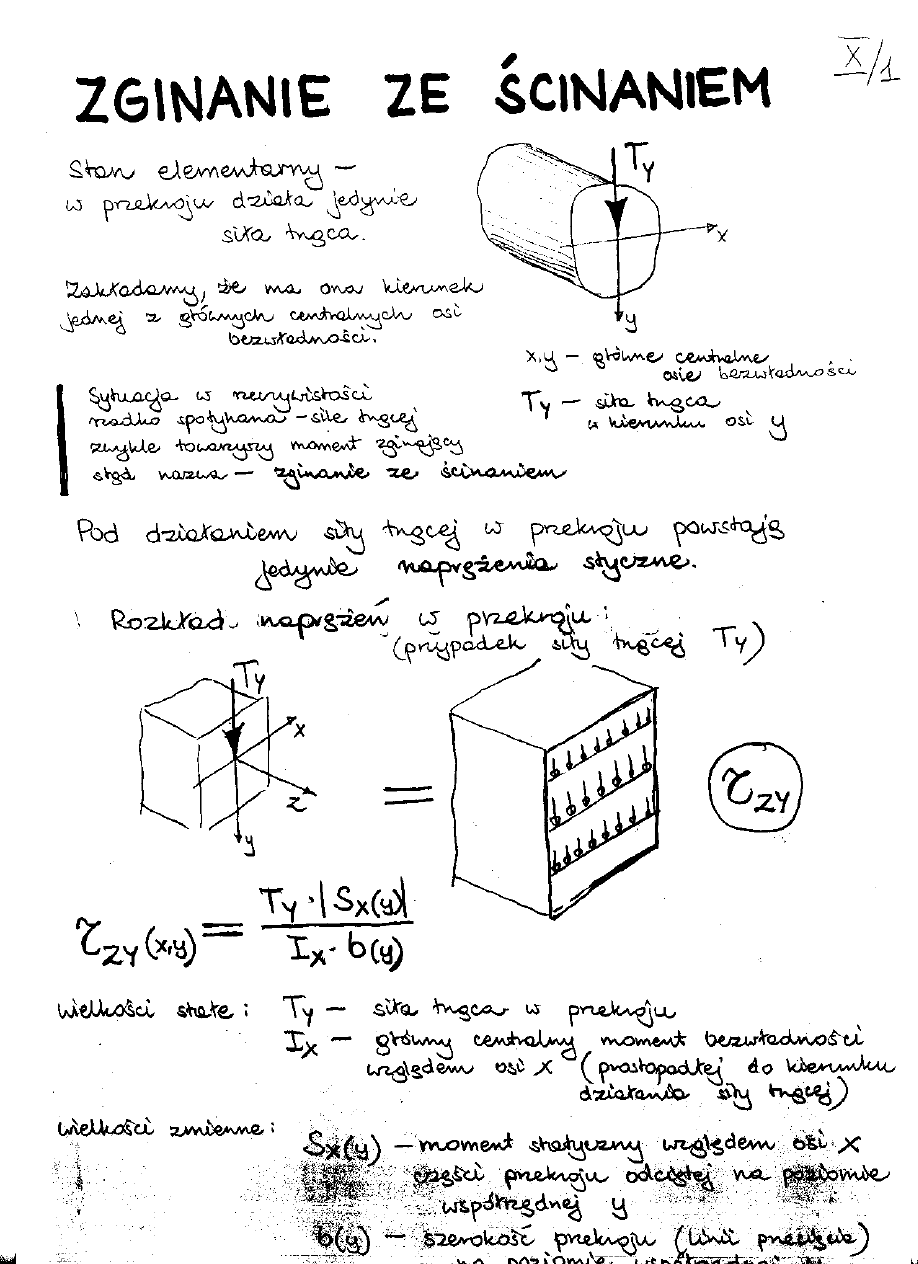 X/1
ZGINANIE ZE ŚCINANIEM
Stan elementarny –
w przekroju działa jedynie
siła tnąca.
Zakładamy, że ma ona kierunek
jednej z głównych centralnych osi
bezwładności.
Ty
x
y
x,y – główne centralne
osie bezwładności
Ty – siła tnąca
w kierunku osi y
Sytuacja w rzeczywistości
rzadko spotykana – sile tnącej
zwykle towarzyszy moment zginający
stąd nazwa – zginanie ze ścinaniem
Pod działaniem siły tnącej w przekroju powstają
jedynie naprężenia styczne.
Rozkład naprężeń w przekroju:
(przypadek siły tnącej Ty)
Ty
x
z
y
=
τzy
τzy(x,y) = Ty·|Sx(y)| / Ix·b(y)
wielkości stałe: Ty – siła tnąca w przekroju
Ix – główny centralny moment bezwładności
względem osi x (prostopadłej do kierunku
działania siły tnącej)
wielkości zmienne:
Sx(y) – moment statyczny względem osi x
części przekroju odciętej na poziomie
współrzędnej y
b(y) – szerokość przekroju (linii przecięcia)
na poziomie współrzędnej y